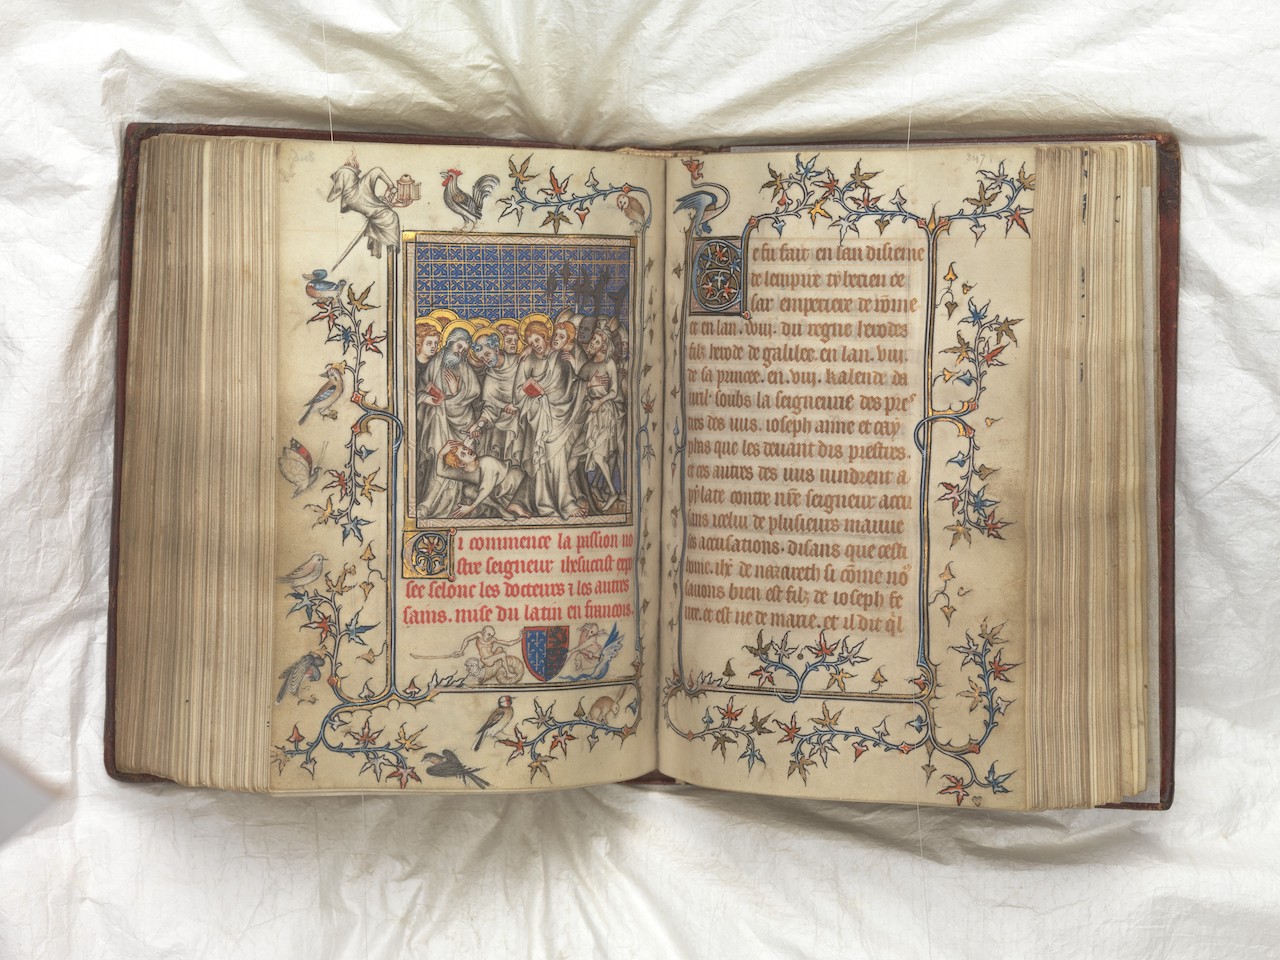 i commence la passion no
stre seigneur ihesucrist exp
see selonc les docteurs ⁊ les autres
sains. mise du latin en francois.
e fu fait en lan disieme
de lempire tyberien ce
sar empereere de rõme
et en lan. viij. du regne herodes
filz herode de galilee. en lan. viij.
de sa princee. en viij. kalende da
uril. soubs la seigneurie des pres
tres des iuis. ioseph anne et cay
phas que les deuant dis prestres.
et ces autres des iuis uindrent a
pylate contre nr̃e seigneur accu
sans icelui de plusieurs mauue
ses accusations. disans que cesti
home. ihc̃ de nazareth si cõme no9
sauons bien est filz de ioseph fe
ure. et est ne de marie. et il dit ql̃